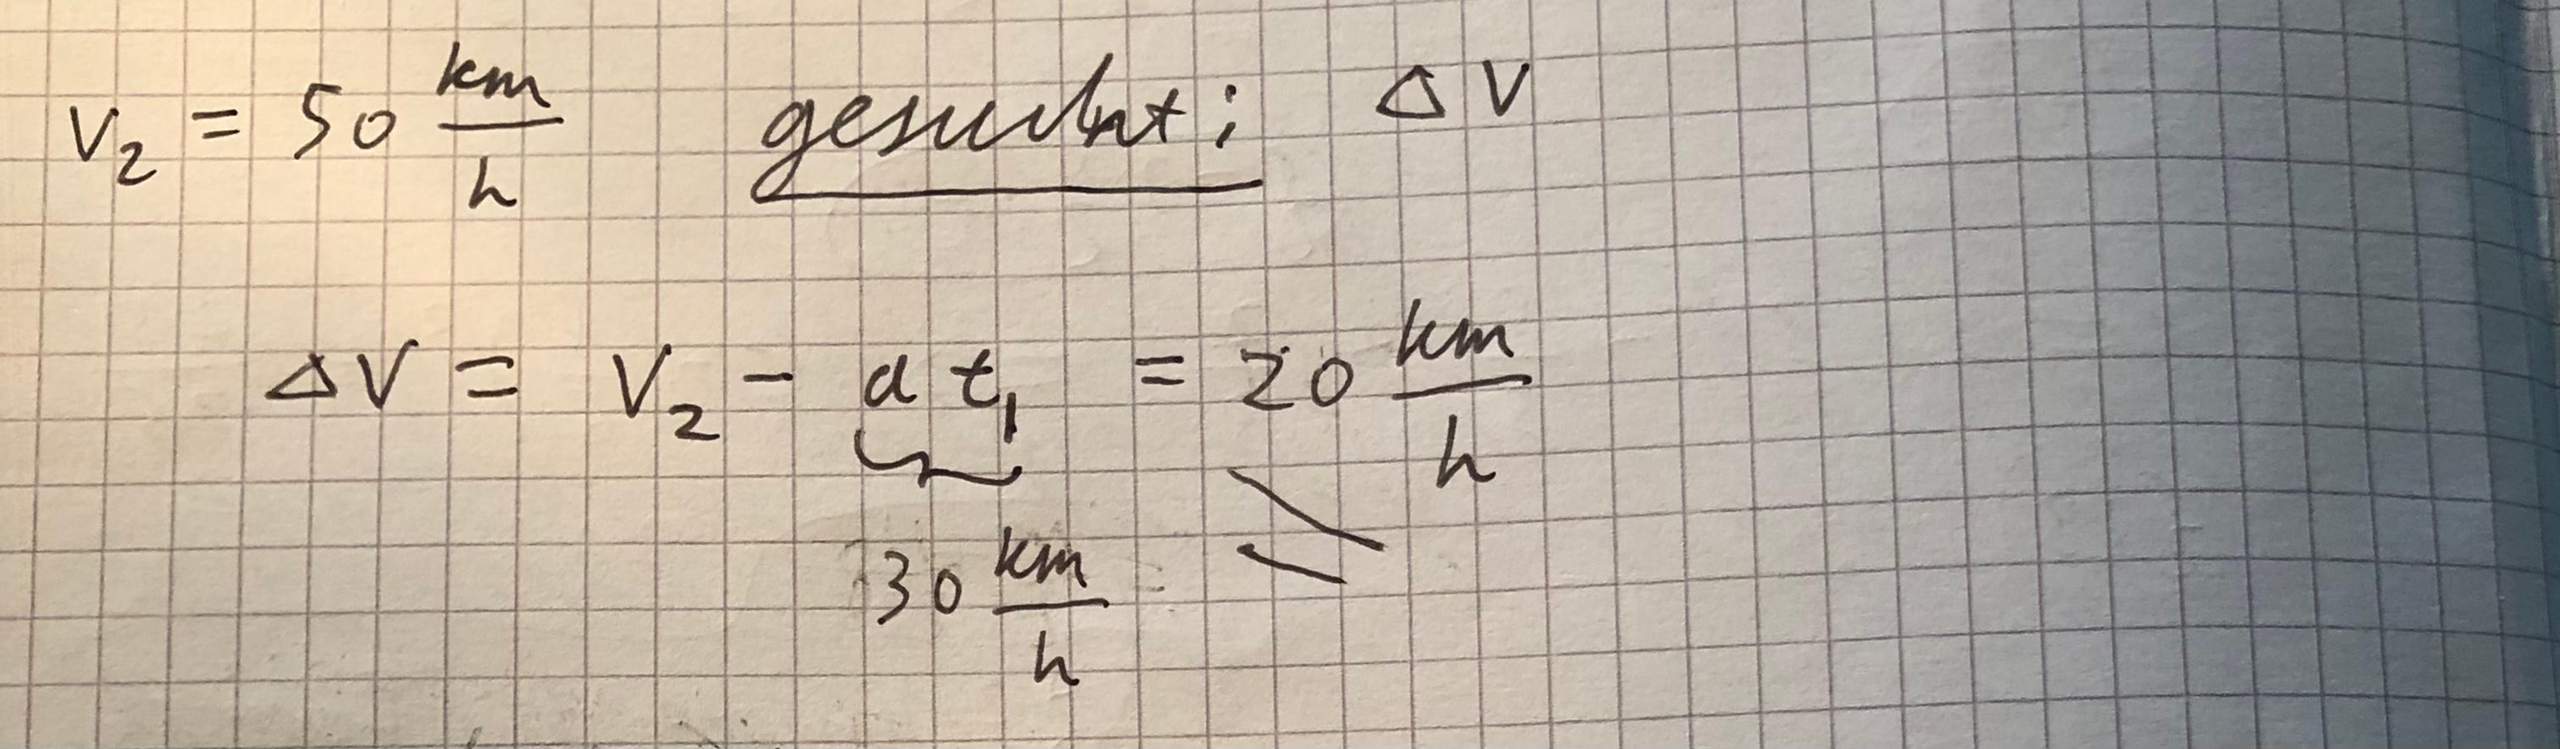 v₂ = 50 km/h gesucht: ΔV
ΔV = V₂ - a t₁ = 20 km/h
30 km/h